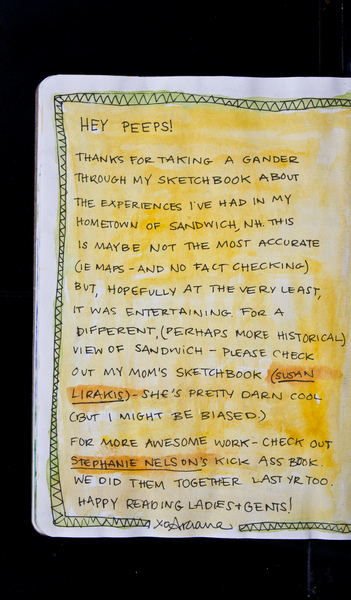 HEY PEEPS!
THANKS FOR TAKING A GANDER
THROUGH MY SKETCHBOOK ABOUT
THE EXPERIENCES I'VE HAD IN MY
HOMETOWN OF SANDWICH, NH. THIS
IS MAYBE NOT THE MOST ACCURATE
(IE MAPS - AND NO FACT CHECKING)
BUT, HOPEFULLY AT THE VERY LEAST,
IT WAS ENTERTAINING. FOR A
DIFFERENT, (PERHAPS MORE HISTORICAL)
VIEW OF SANDWICH - PLEASE CHECK
OUT MY MOM'S SKETCHBOOK (SUSAN
LIRAKIS) - SHE'S PRETTY DARN COOL
(BUT I MIGHT BE BIASED.)
FOR MORE AWESOME WORK - CHECK OUT
STEPHANIE NELSON'S KICK ASS BOOK.
WE DID THEM TOGETHER LAST YR TOO.
HAPPY READING LADIES + GENTS!
xo Ariana